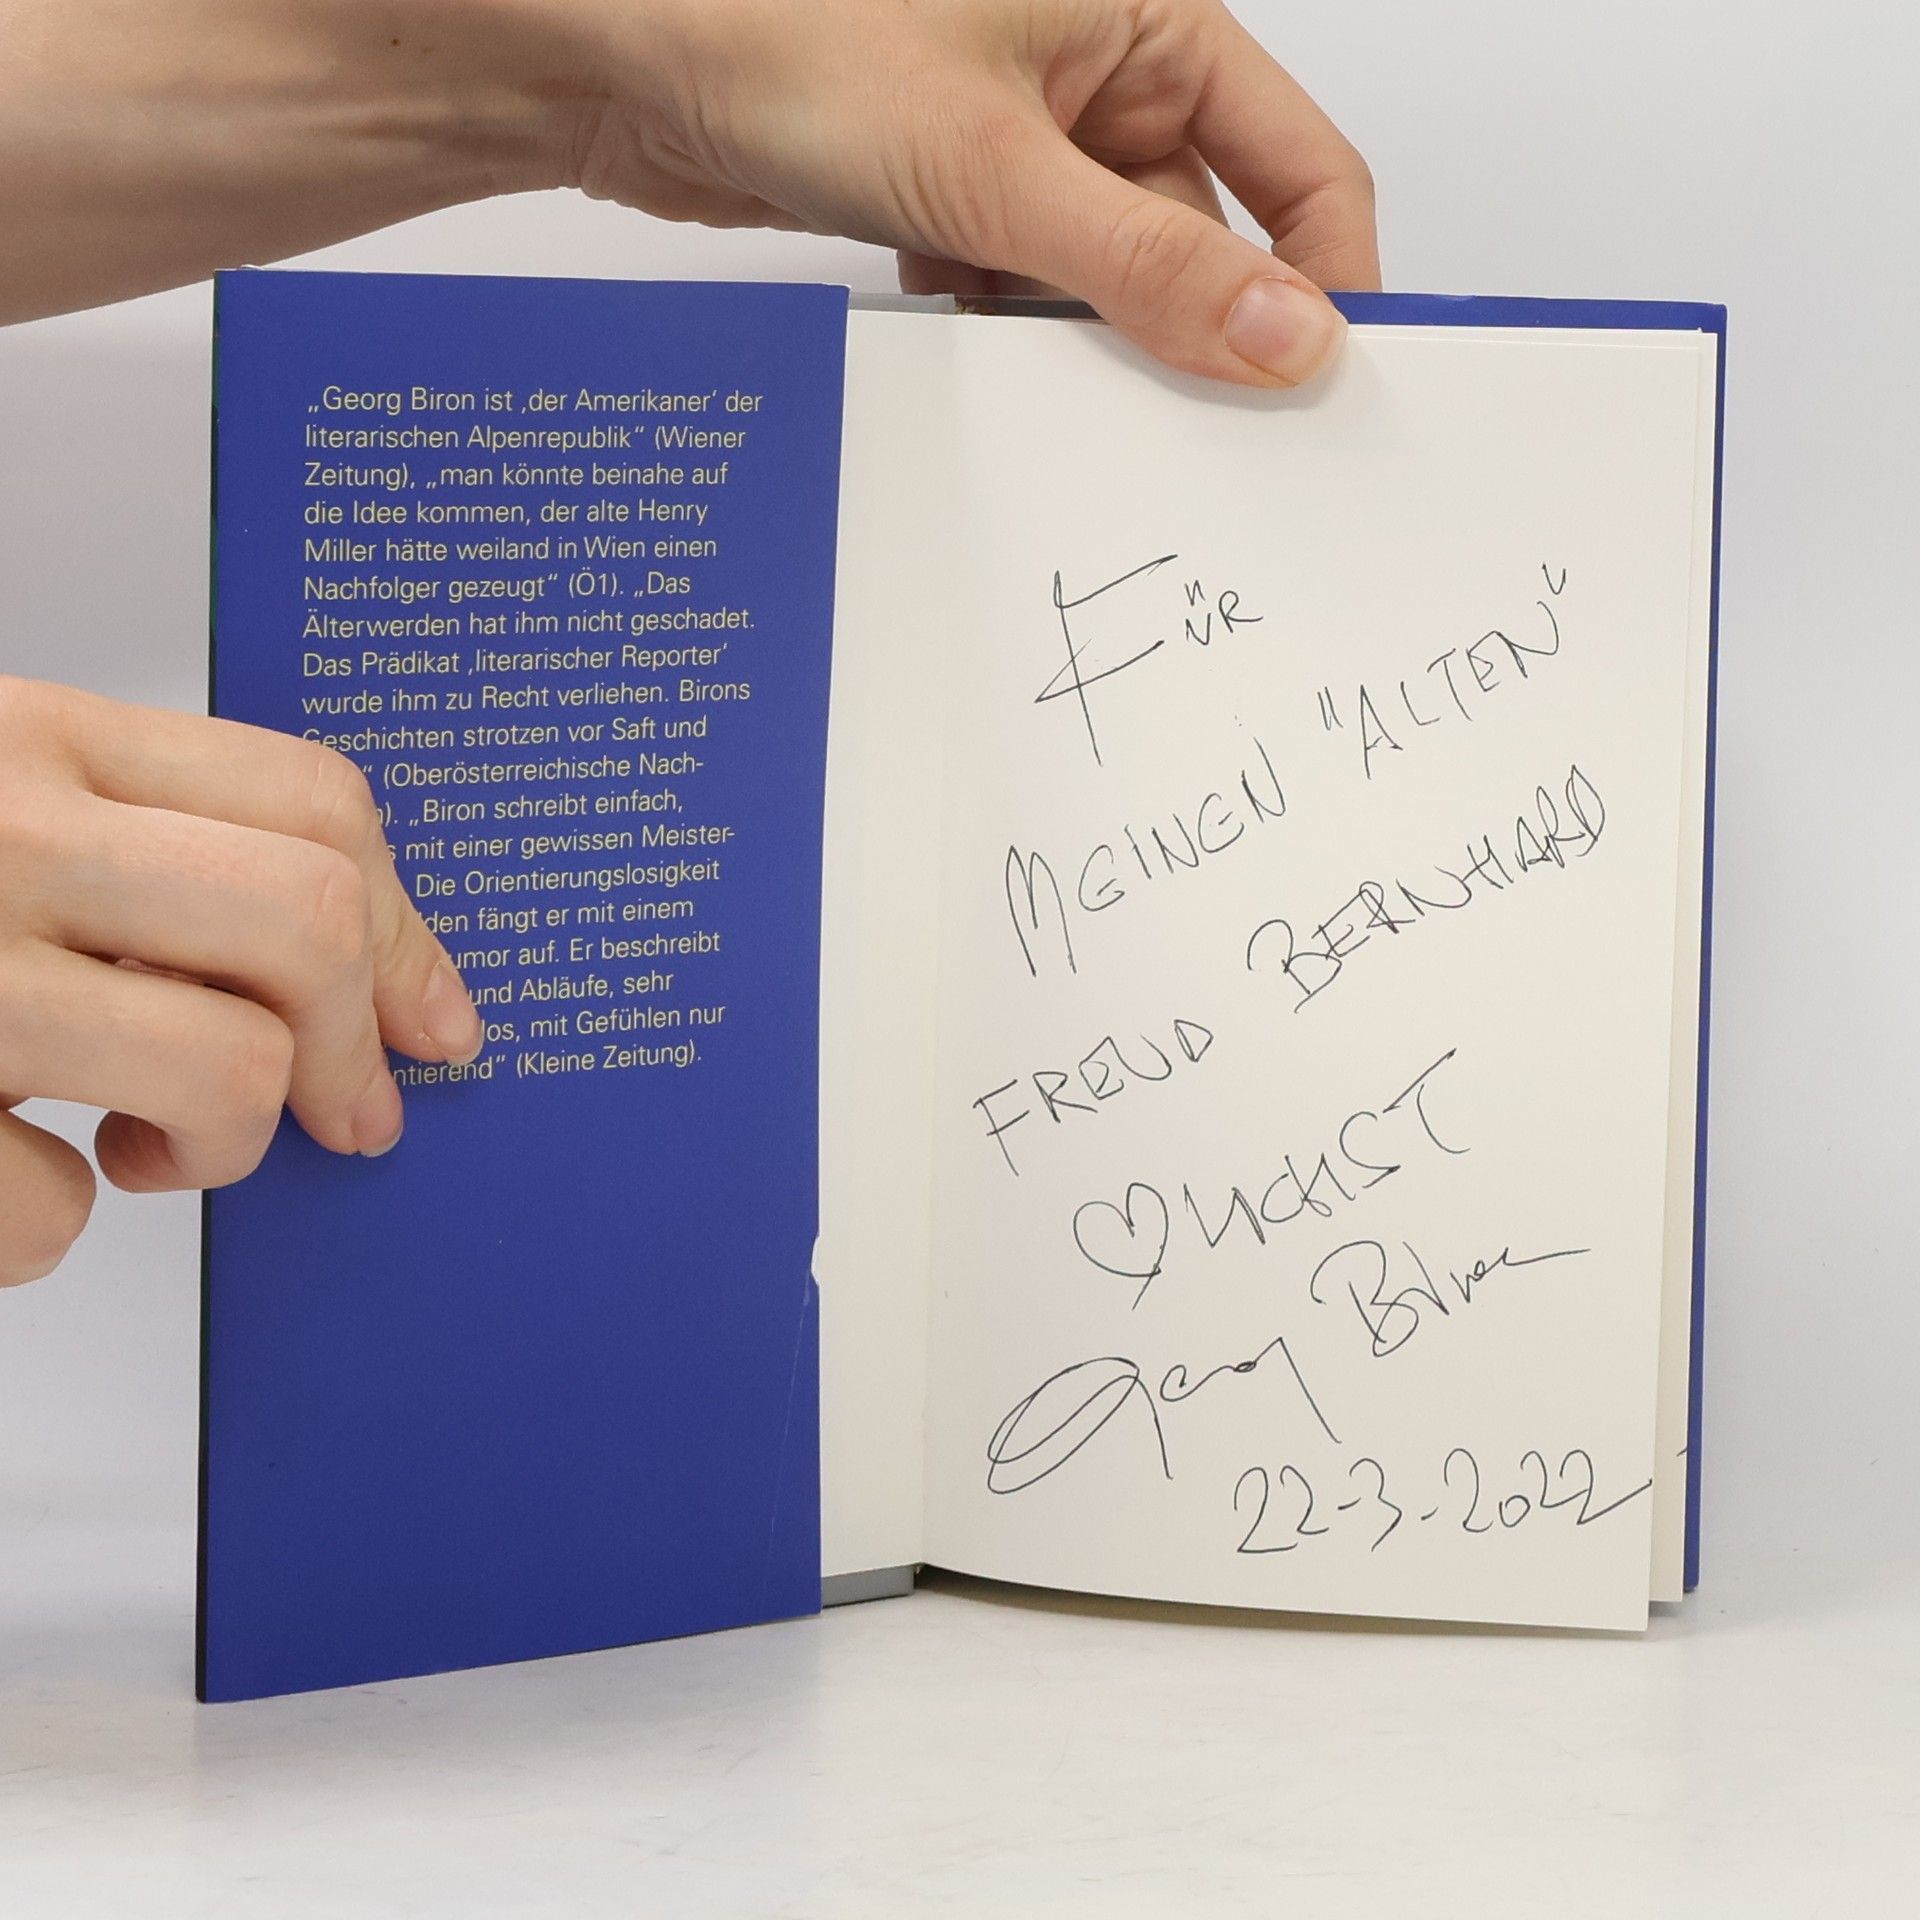 „Georg Biron ist ‚der Amerikaner‘ der
literarischen Alpenrepublik“ (Wiener
Zeitung), „man könnte beinahe auf
die Idee kommen, der alte Henry
Miller hätte weiland in Wien einen
Nachfolger gezeugt“ (Ö1). „Das
Älterwerden hat ihm nicht geschadet.
Das Prädikat ‚literarischer Reporter‘
wurde ihm zu Recht verliehen. Birons
Geschichten strotzen vor Saft und
“ (Oberösterreichische Nach-
). „Biron schreibt einfach,
mit einer gewissen Meister-
Die Orientierungslosigkeit
den fängt er mit einem
umor auf. Er beschreibt
und Abläufe, sehr
los, mit Gefühlen nur
ntierend“ (Kleine Zeitung).
FÜR
MEINEN "ALTEN"
FREUND BERNHARD
♡LICHST
Georg Biron
22-3-2022